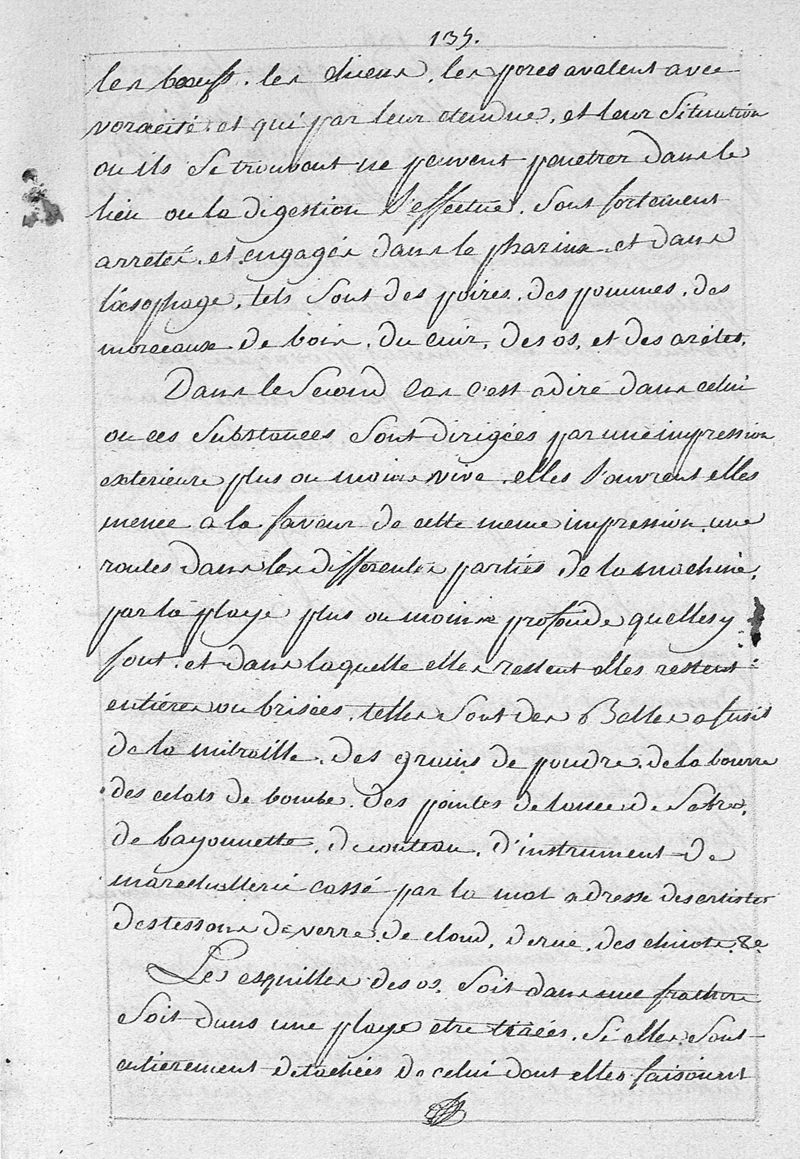 135.
les bœufs, les chiens, les porcs avalent avec
voracité et qui par leur etendue, et leur Situation
ou ils Se trouvent ne peuvent penetrer dans le
lieu ou la digestion S'effectue. Sont fortement
arretés, et engagés dans le pharinx et dans
l'œsophage, tels Sont des poires, des pommes, des
morceaux de bois, du cuir, des os, et des arêtes.
Dans le Second Cas c'est adire dans celui
ou ces Substances Sont dirigées par une impression
exterieure plus ou moins vive, elles S'ouvrent elles
meme a la faveur de cette meme impression, une
routes dans les differentes parties de la machine,
par la playe plus ou moins profonde quelles y
font, et dans laquelle elles restent elles restent
entiéres ou brisées, telles Sont des Balles a fusil
de la mitraille, des grains de poudre, de la bourre
des eclats de bombe, des pointes de lance de Sabre,
de bayonnette, de couteau, d'instrument de
marechallerie cassé par la mal adresse des artistes
des tessons de verre, de cloud, de rue, des chicots, &c
Les esquilles des os, Soit dans une fracture
Soit dans une playe etre tirées, Si elles Sont
entierement detachées de celui dont elles faisoient